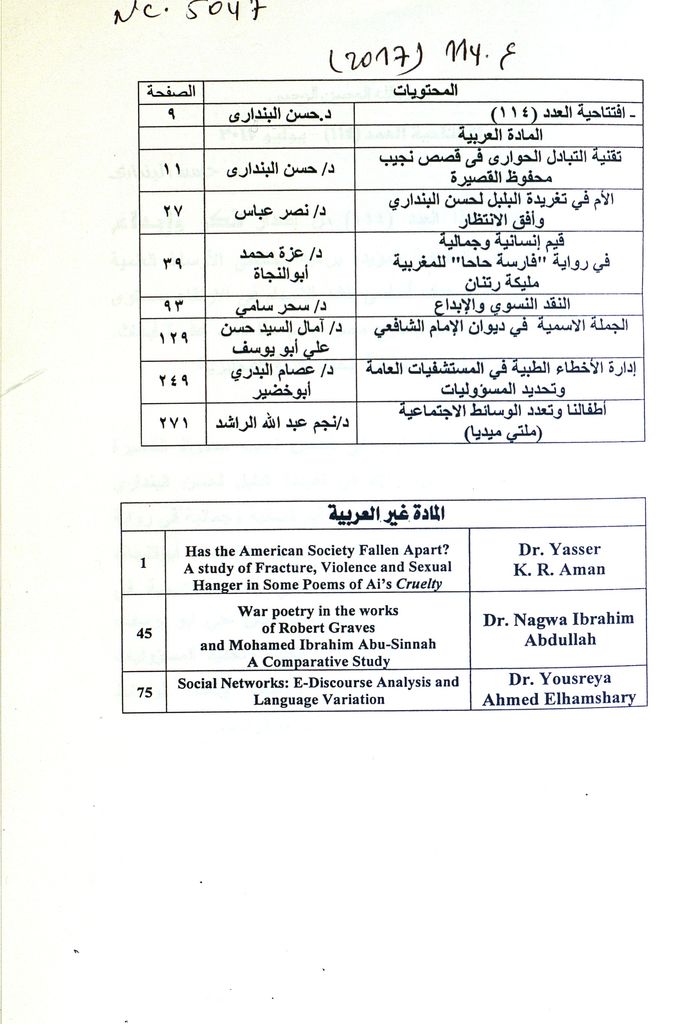 NC. 5047
ع. 114 (2017)
المحتويات
الصفحة
ـ افتتاحية العدد (١١٤)
د.حسن البندارى
٩
المادة العربية
تقنية التبادل الحوارى فى قصص نجيب
محفوظ القصيرة
د/ حسن البندارى
١١
الأم في تغريدة البلبل لحسن البنداري
وأفق الانتظار
د/ نصر عباس
٢٧
قيم إنسانية وجمالية
في رواية "فارسة حاحا" للمغربية
مليكة رتنان
د/ عزة محمد
أبوالنجاة
٣٩
النقد النسوي والإبداع
د/ سحر سامي
٩٣
الجملة الاسمية في ديوان الإمام الشافعي
د/ آمال السيد حسن
علي أبو يوسف
١٢٩
إدارة الأخطاء الطبية في المستشفيات العامة
وتحديد المسؤوليات
د/ عصام البدري
أبوخضير
٢٤٩
أطفالنا وتعدد الوسائط الاجتماعية
(ملتي ميديا)
د/نجم عبد الله الراشد
٢٧١
المادة غير العربية
1
Has the American Society Fallen Apart?
A study of Fracture, Violence and Sexual
Hanger in Some Poems of Ai's Cruelty
Dr. Yasser
K. R. Aman
45
War poetry in the works
of Robert Graves
and Mohamed Ibrahim Abu-Sinnah
A Comparative Study
Dr. Nagwa Ibrahim
Abdullah
75
Social Networks: E-Discourse Analysis and
Language Variation
Dr. Yousreya
Ahmed Elhamshary